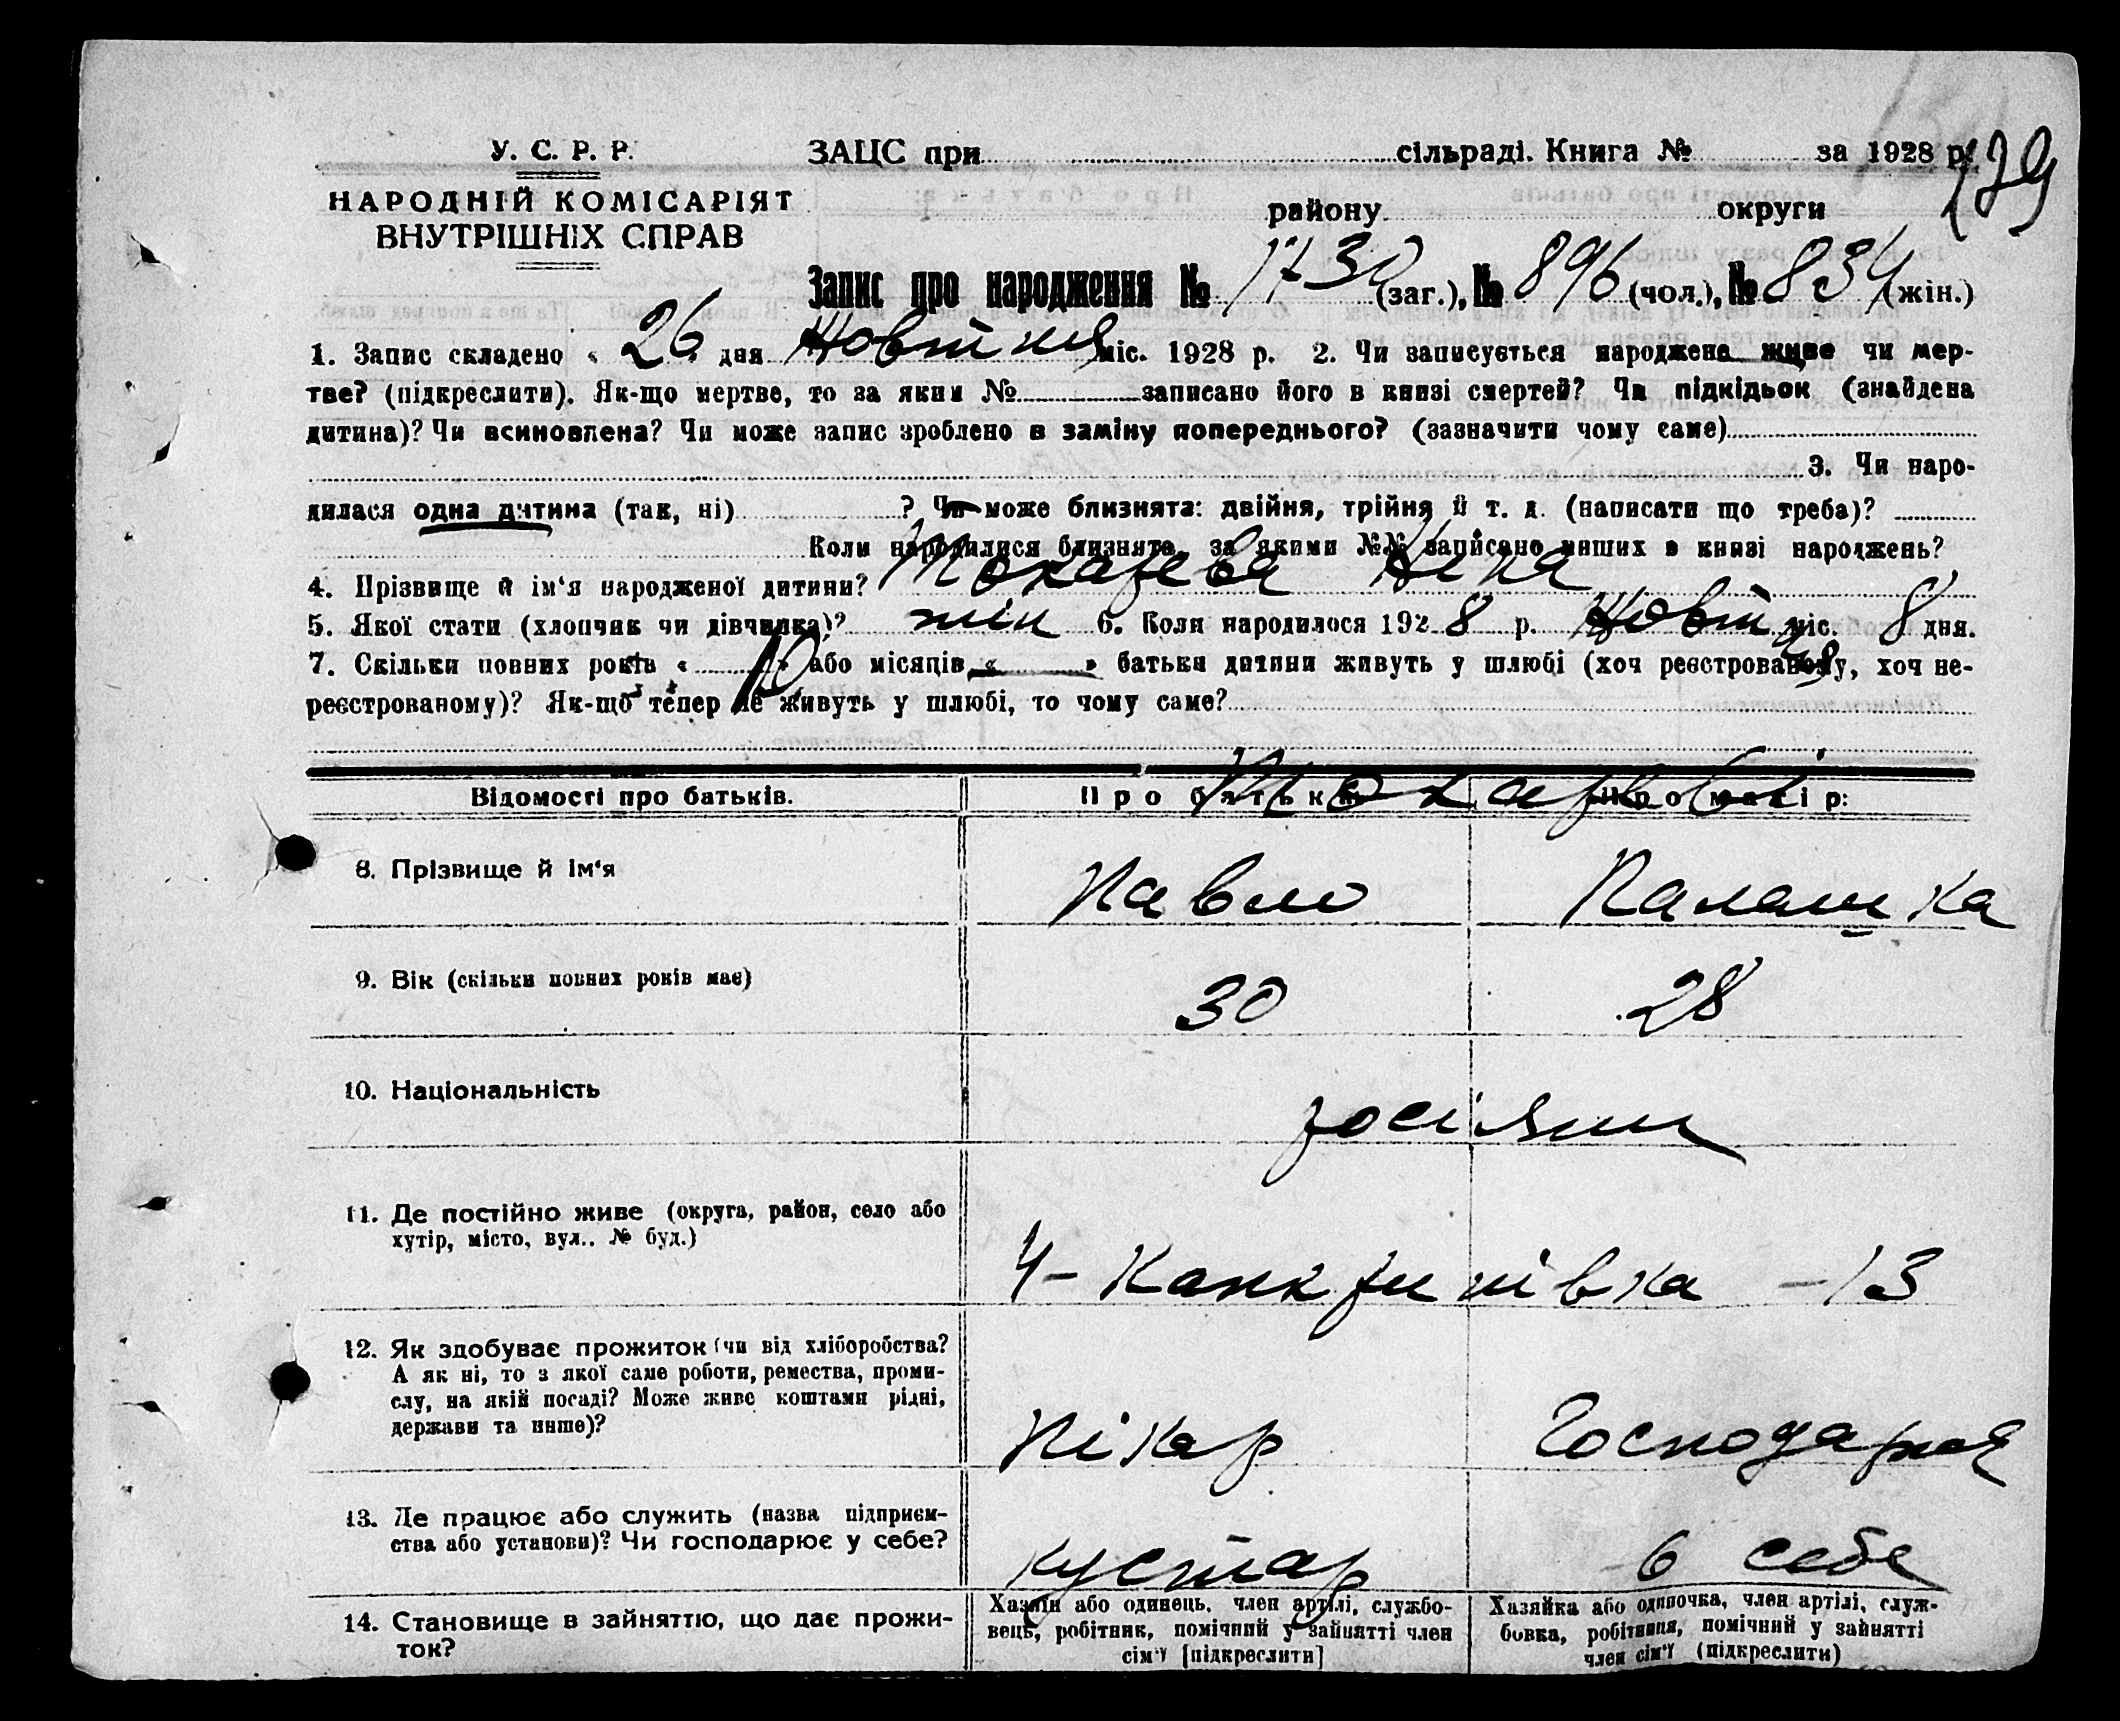 У. С. Р. Р.
НАРОДНІЙ КОМІСАРІЯТ
ВНУТРІШНІХ СПРАВ
ЗАЦС при сільраді. Книга № за 1928 р.
179
району округи
Запис про народження № 1730 (заг.), № 896 (чол.), № 834 (жін.)
1. Запис складено « 26 » дня Жовтня міс. 1928 р. 2. Чи записується народжене живе чи мер-
тве? (підкреслити). Як-що мертве, то за яким № записано його в книзі смертей? Чи підкідьок (знайдена
дитина)? Чи всиновлена? Чи може запис зроблено в заміну попереднього? (зазначити чому саме)
3. Чи наро-
дилася одна дитина (так, ні) ? Чи може близнята: двійня, трійня й т. д. (написати що треба)?
Коли народилися близнята, за якими №№ записано инших в книзі народжень?
4. Прізвище й ім‘я народженої дитини? Токарева Ніна
5. Якої стати (хлопчик чи дівчинка)? жін 6. Коли народилося 192 8 р. Жовт міс. 8 дня.
7. Скільки повних років « 10 » або місяців « » батьки дитини живуть у шлюбі (хоч реєстрованому, хоч не-
реєстрованому)? Як-що тепер не живуть у шлюбі, то чому саме?
Відомості про батьків. Про батька: Про матір:
Токарєві
8. Прізвище й ім‘я Павло Палашка
9. Вік (скільки повних років має) 30 28
10. Національність росіяни
11. Де постійно живе (округа, район, село або
хутір, місто, вул.. № буд.)
4 - Канкринівка - 13
12. Як здобуває прожиток (чи від хліборобства?
А як ні, то з якої саме роботи, ремества, проми-
слу, на якій посаді? Може живе коштами рідні,
держави та инше)?
Пікар Господарює
13. Де працює або служить (назва підприєм-
ства або установи)? Чи господарює у себе?
кустар в себе
14. Становище в зайняттю, що дає прожи-
ток?
Хазяїн або одинець, член артілі, службо-
вець, робітник, помічний у зайнятті член
сім‘ї [підкреслити]
Хазяйка або одиночка, член артілі, служ-
бовка, робітниця, помічний у зайнятті
член сім‘ї (підкреслити)